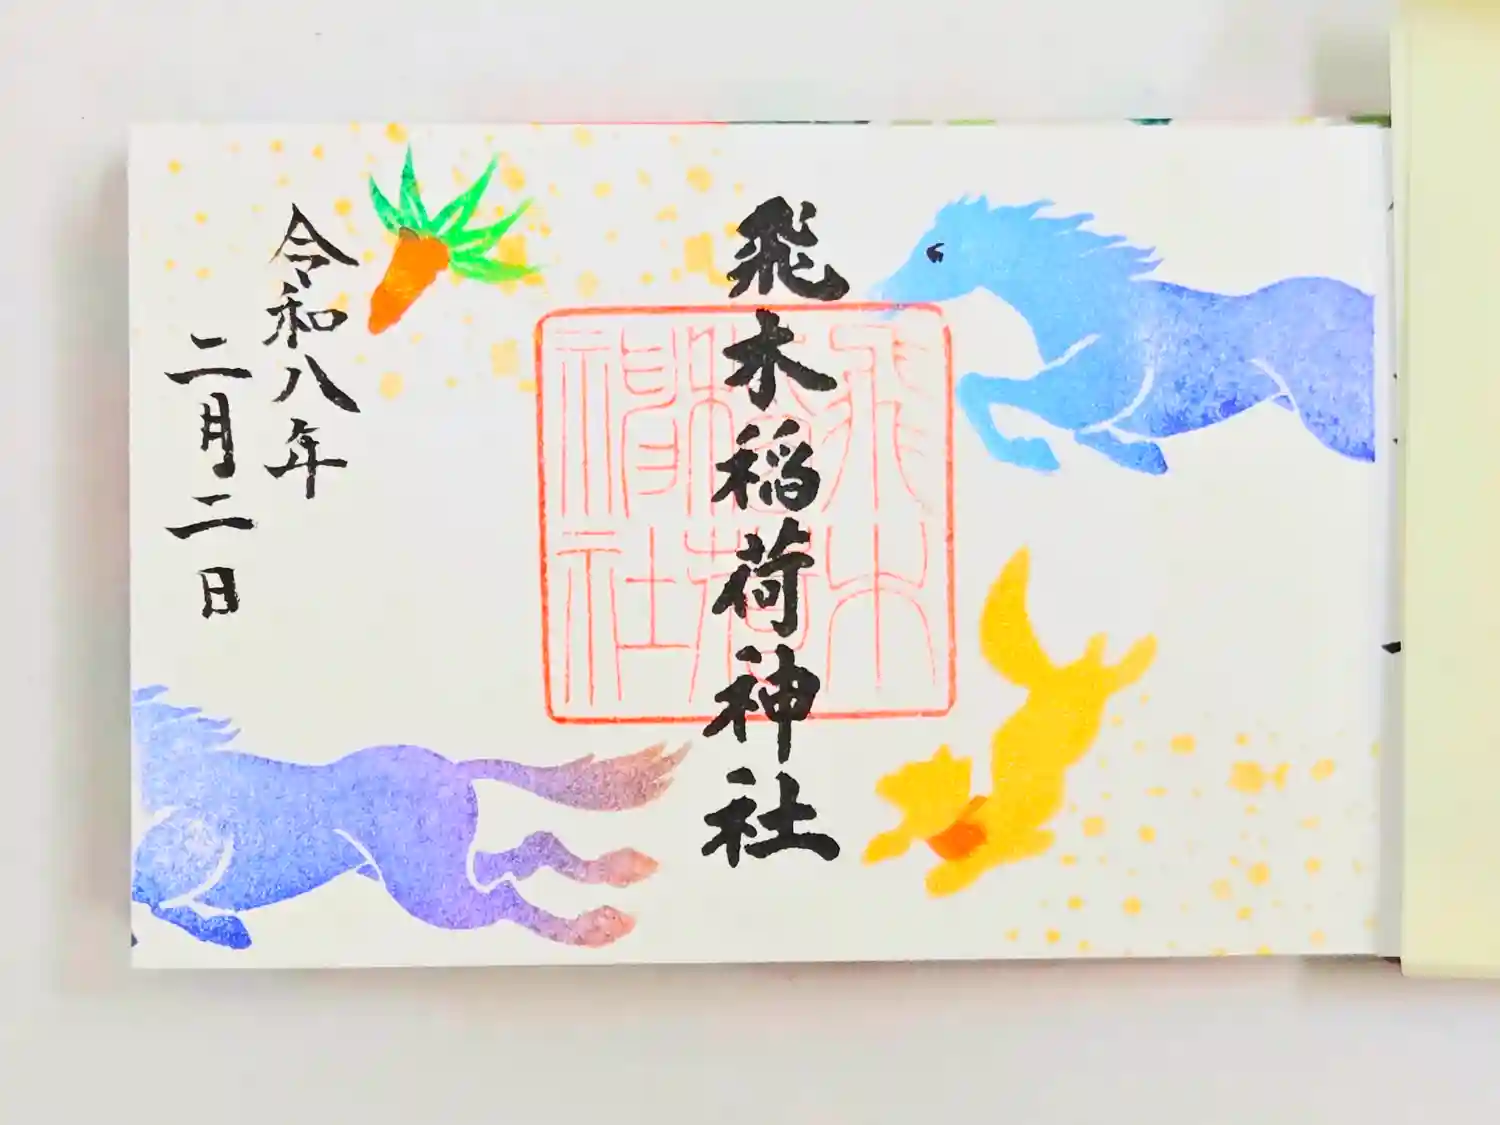 飛木稲荷神社
飛木稲荷神社
令和八年
二月二日